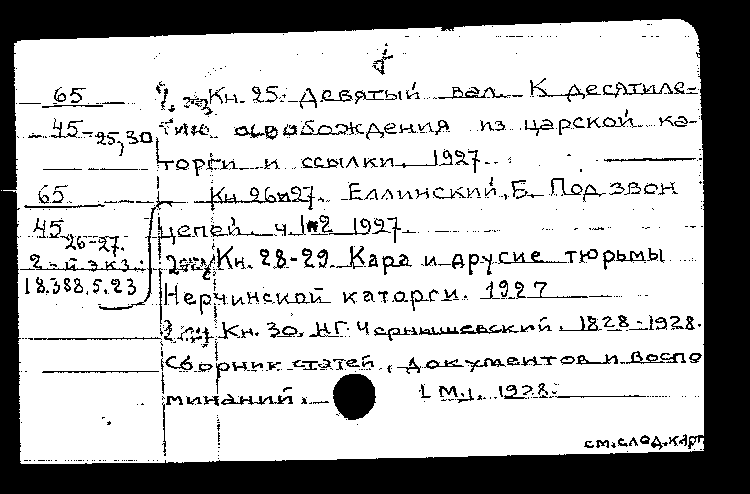 65 Кн. 25. Девятый вал. К десятиле-
45-25,30 тию освобождения из царской ка-
торги и ссылки. 1927.
65 Кн 26и27. Еллинский, Б. Под звон
45 26-27. цепей. ч. 1и2 1927.
2-й экз.: Кн. 28-29. Кара и другие тюрьмы
18.388.5.23 Нерчинской каторги. 1927
Кн. 30. Н.Г. Чернышевский. 1828-1928.
Сборник статей, документов и воспо
минаний. [М.], 1928.
см.след.карт